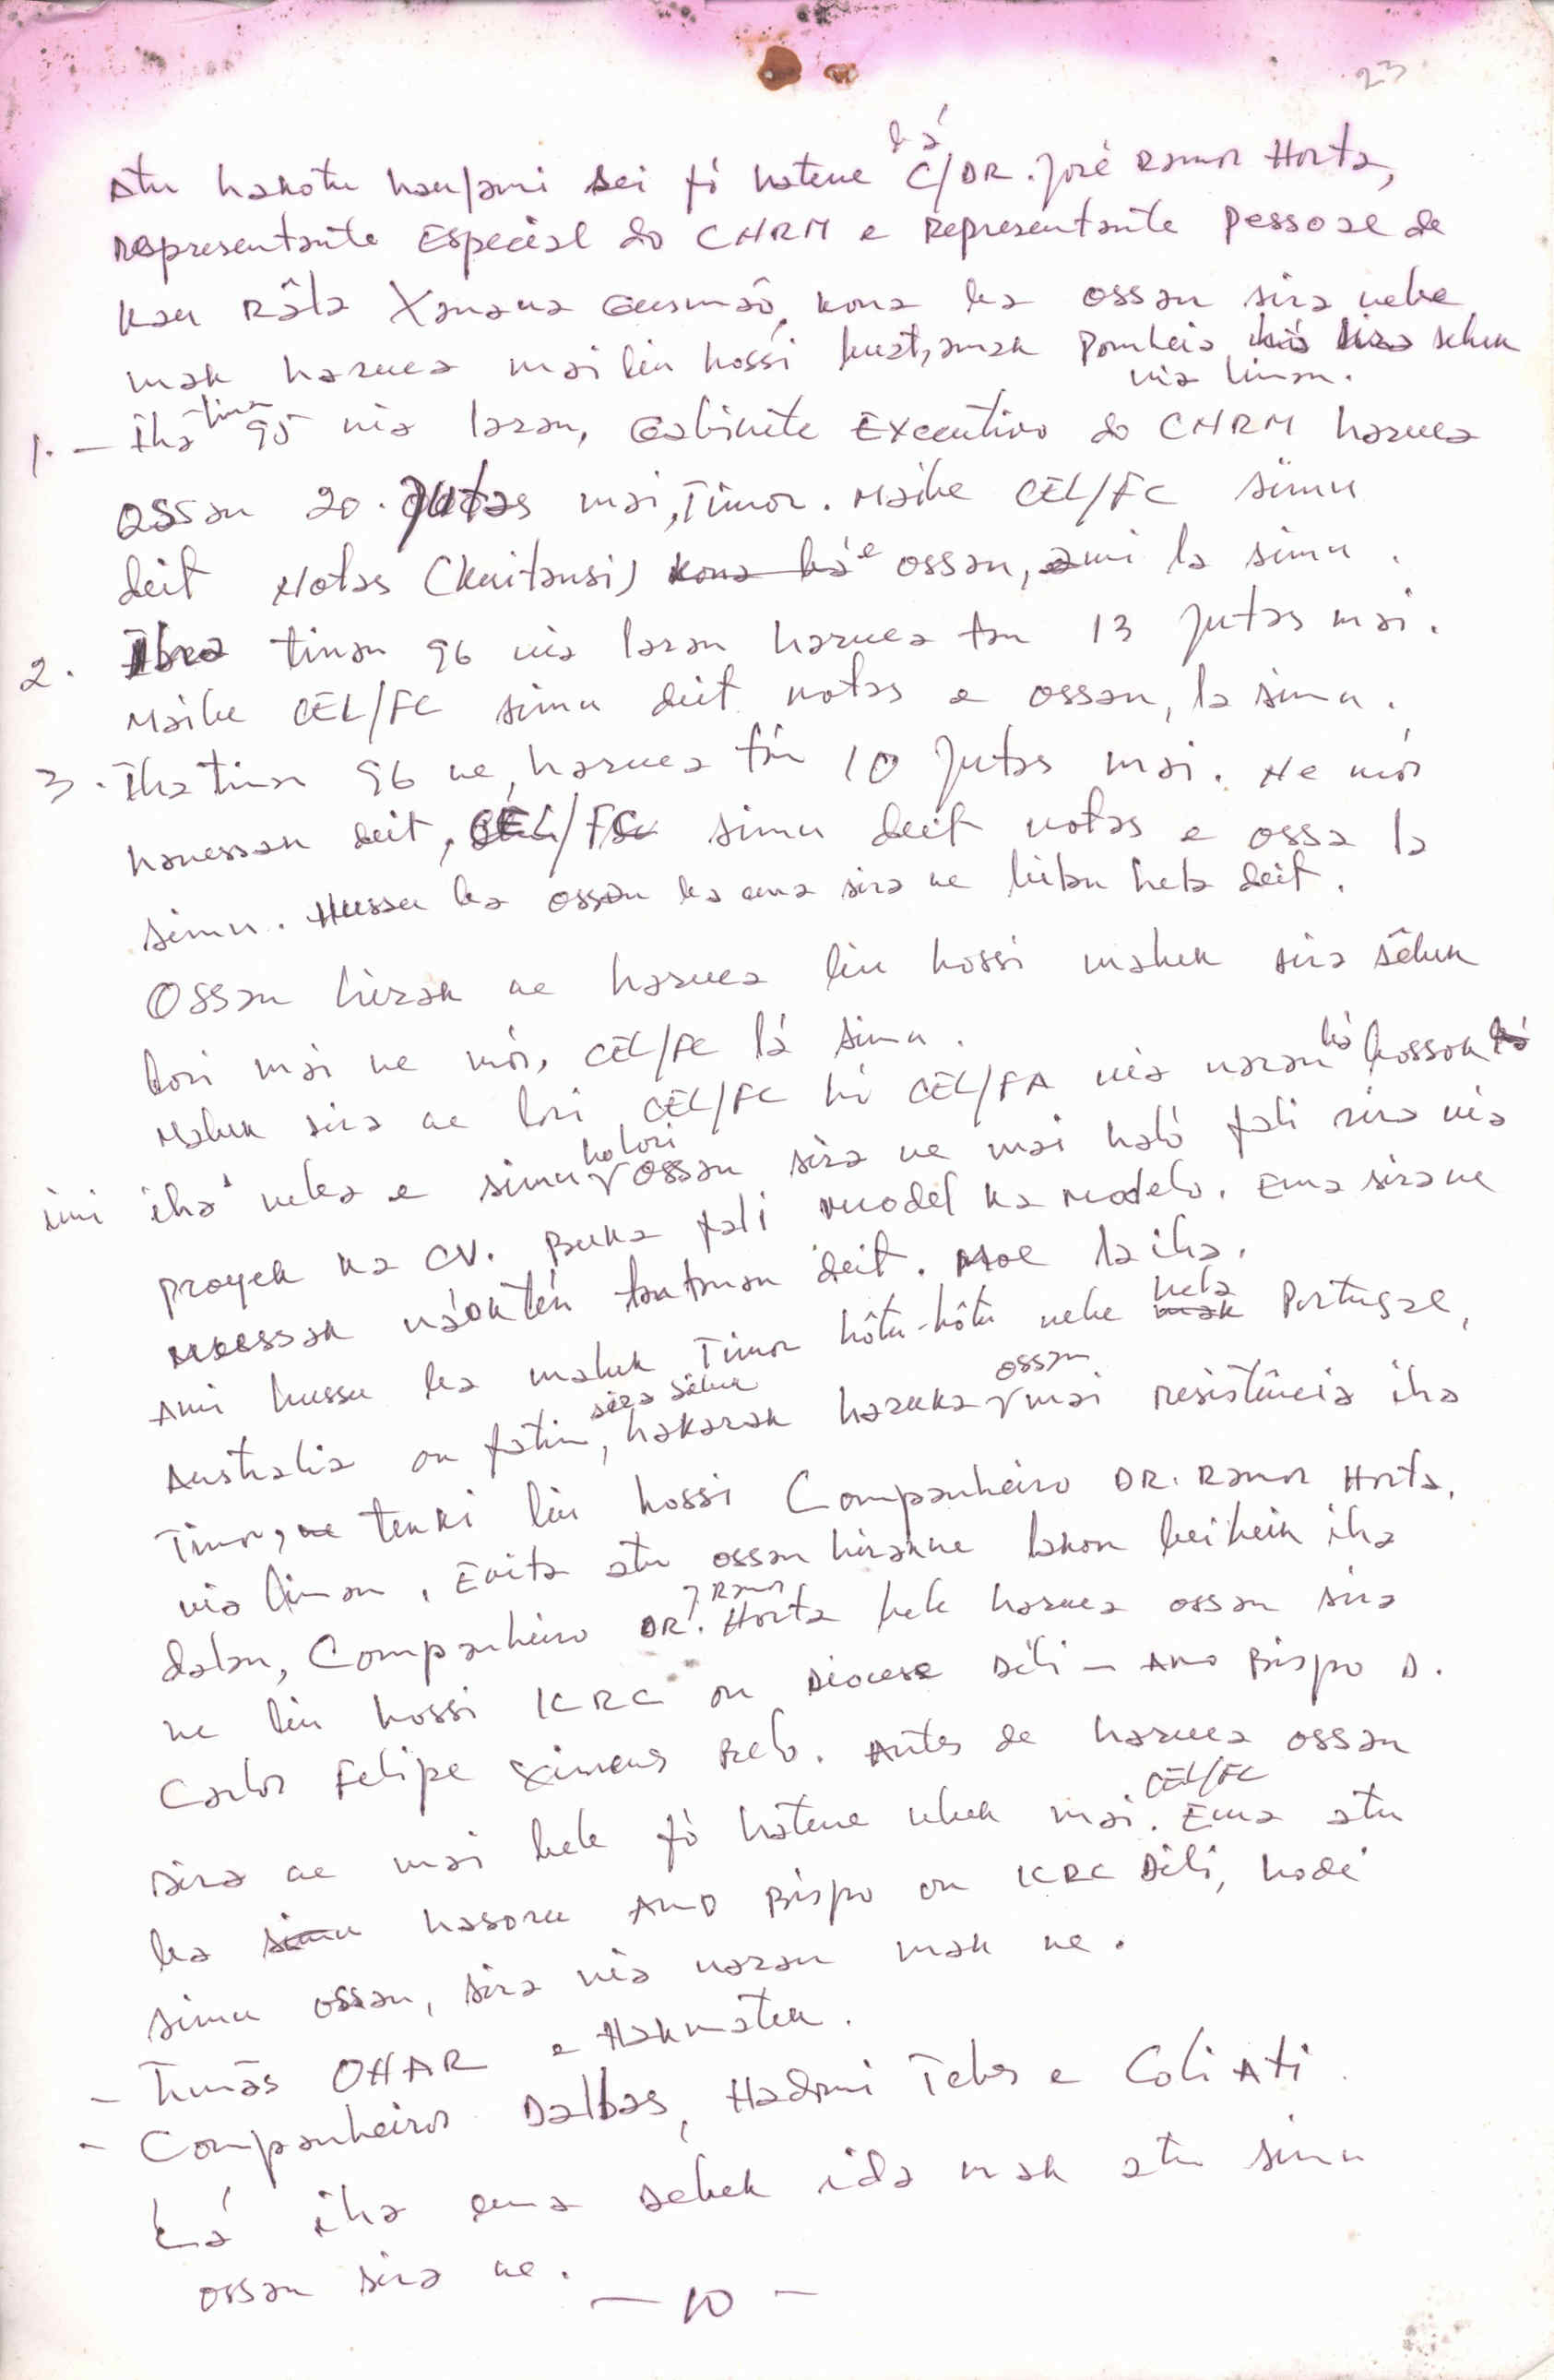 23
Atu hakotu hau/ami sei fó hatene bá C/DR. José Ramos Horta,
Representante Especial do CNRM e Representante Pessoal de
Kau Râla Xanana Gusmaõ, kona ba ossan sira nebe
mak haruca mai liu hossi huat, aman Pombeia sira seluk
nia liman.
1. - Iha tinan 95 nia laran, Gabinete Executivo do CNRM haruca
ossan 20. Jutas mai, Timor. Maibe CEL/FC simu
deit Notas (Kuitansi) e ossan, ami la simu.
2. Iha tinan 96 nia laran haruca tan 13 Jutas mai.
Maibe CEL/FC simu deit notas e ossan, la simu.
3. Iha tinan 96 ne, haruca tán 10 Jutas mai. Ne mós
hanessan deit, CEL/FC simu deit notas e ossa la
simu. Hussu ba ossan ba ema sira ne liban hela deit.
Ossan hirak ne haruca liu hossi maluk sira sêluk
lori mai ne mós, CEL/FC lá simu.
Maluk sira ne lori CEL/FC hó CEL/FA nia naran bá hossok
imi iha neba e simu holori ossan sira ne mai haló fali sira nia
proyek ka CV. Buka fali model ka modelo. Ema sira ne
naok tén tantuan deit. Moe la iha.
Ami hussu ba maluk Timor hôtu-hôtu nebe hela Portugal,
Australia ou fatin sira seluk, hakarak haruka ossan mai resistência iha
Timor, tenki liu hossi Companheiro DR. Ramos Horta,
nia liman. Evita atu ossan hirak ne lakon beibeik iha
dalan, Companheiro DR. J. Ramos Horta bele haruca ossan sira
ne liu hossi ICRC ou Diocese Dili - Amo Bispo D.
Carlos Felipe Ximenes Belo. Antes de haruca ossan
sira ne mai bele fó hatene uluk mai CEL/FC. Ema atu
ba hasoru Amo Bispo ou ICRC Dili, hodi
simu ossan, sira nia naran mak ne.
- Tumás OHAR e Hakmatek.
- Companheiros Dalbas, Hadomi Tebes e Coli Ati
Lá iha ema seluk ida mak atu simu
ossan sira ne.
- 10 -